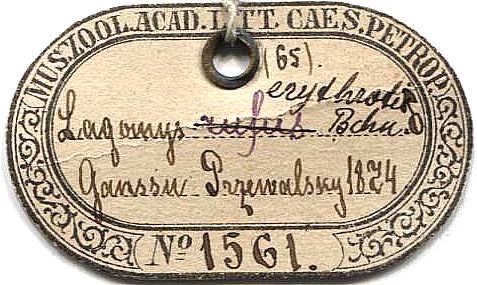 MUS. ZOOL. ACAD. LITT. CAES. PETROP.
(65).
erythrotis
Lagomys rufus Bchn.
Ganssu Przewalsky 1874
No 1561.